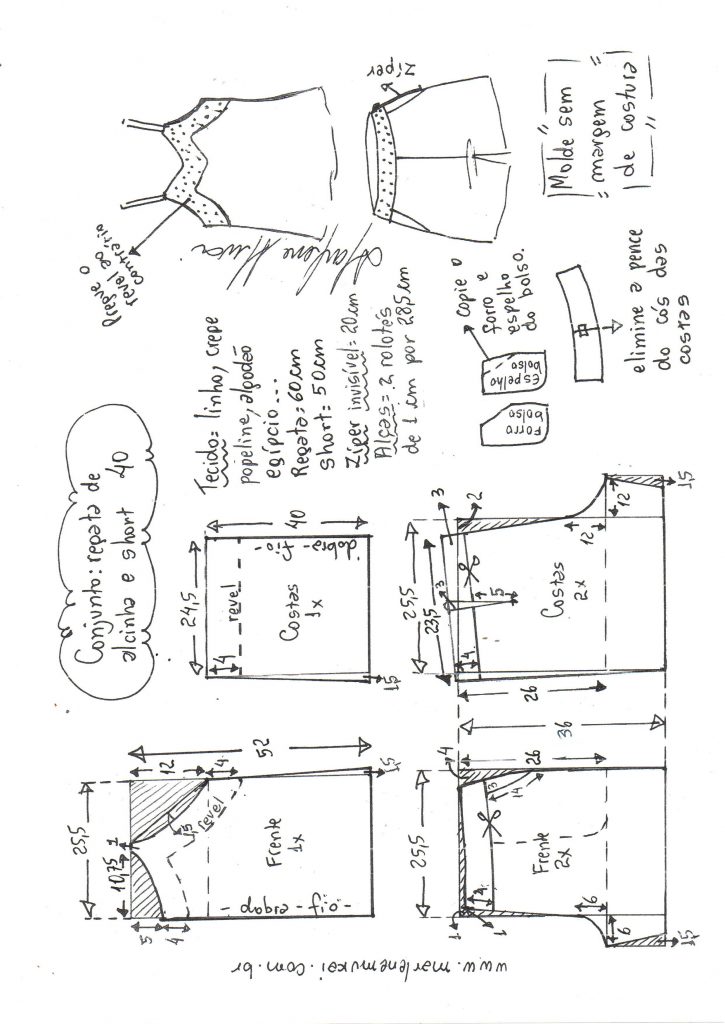 Conjunto: regata de
alcinha e short 40
Tecido= linho, crepe
popeline, algodão
egípcio...
Regata= 60 cm
short= 50 cm
Zíper invisível= 20 cm
Alças= 2 rolotês
de 1 cm por 28,5 cm
Pregue o
revel ao
contrário
Marlene Mukai
zíper
25,5
10,75
1
5
4
12
4
52
15
revel
Frente
1x
-dobra-fio-
1,5
24,5
4
revel
Costas
1x
40
dobra-fio-
1,5
Forro
bolso
Espelho
bolso
copie o
forro e
espelho
do bolso.
elimine a pence
do cós das
costas
"Molde sem
margem
de costura"
25,5
4
1
1
4
3
14
26
Frente
2x
6
6
1,5
36
25,5
23,5
3
3
2
4
5
Costas
2x
26
12
12
1,5
www.marlenemukai.com.br